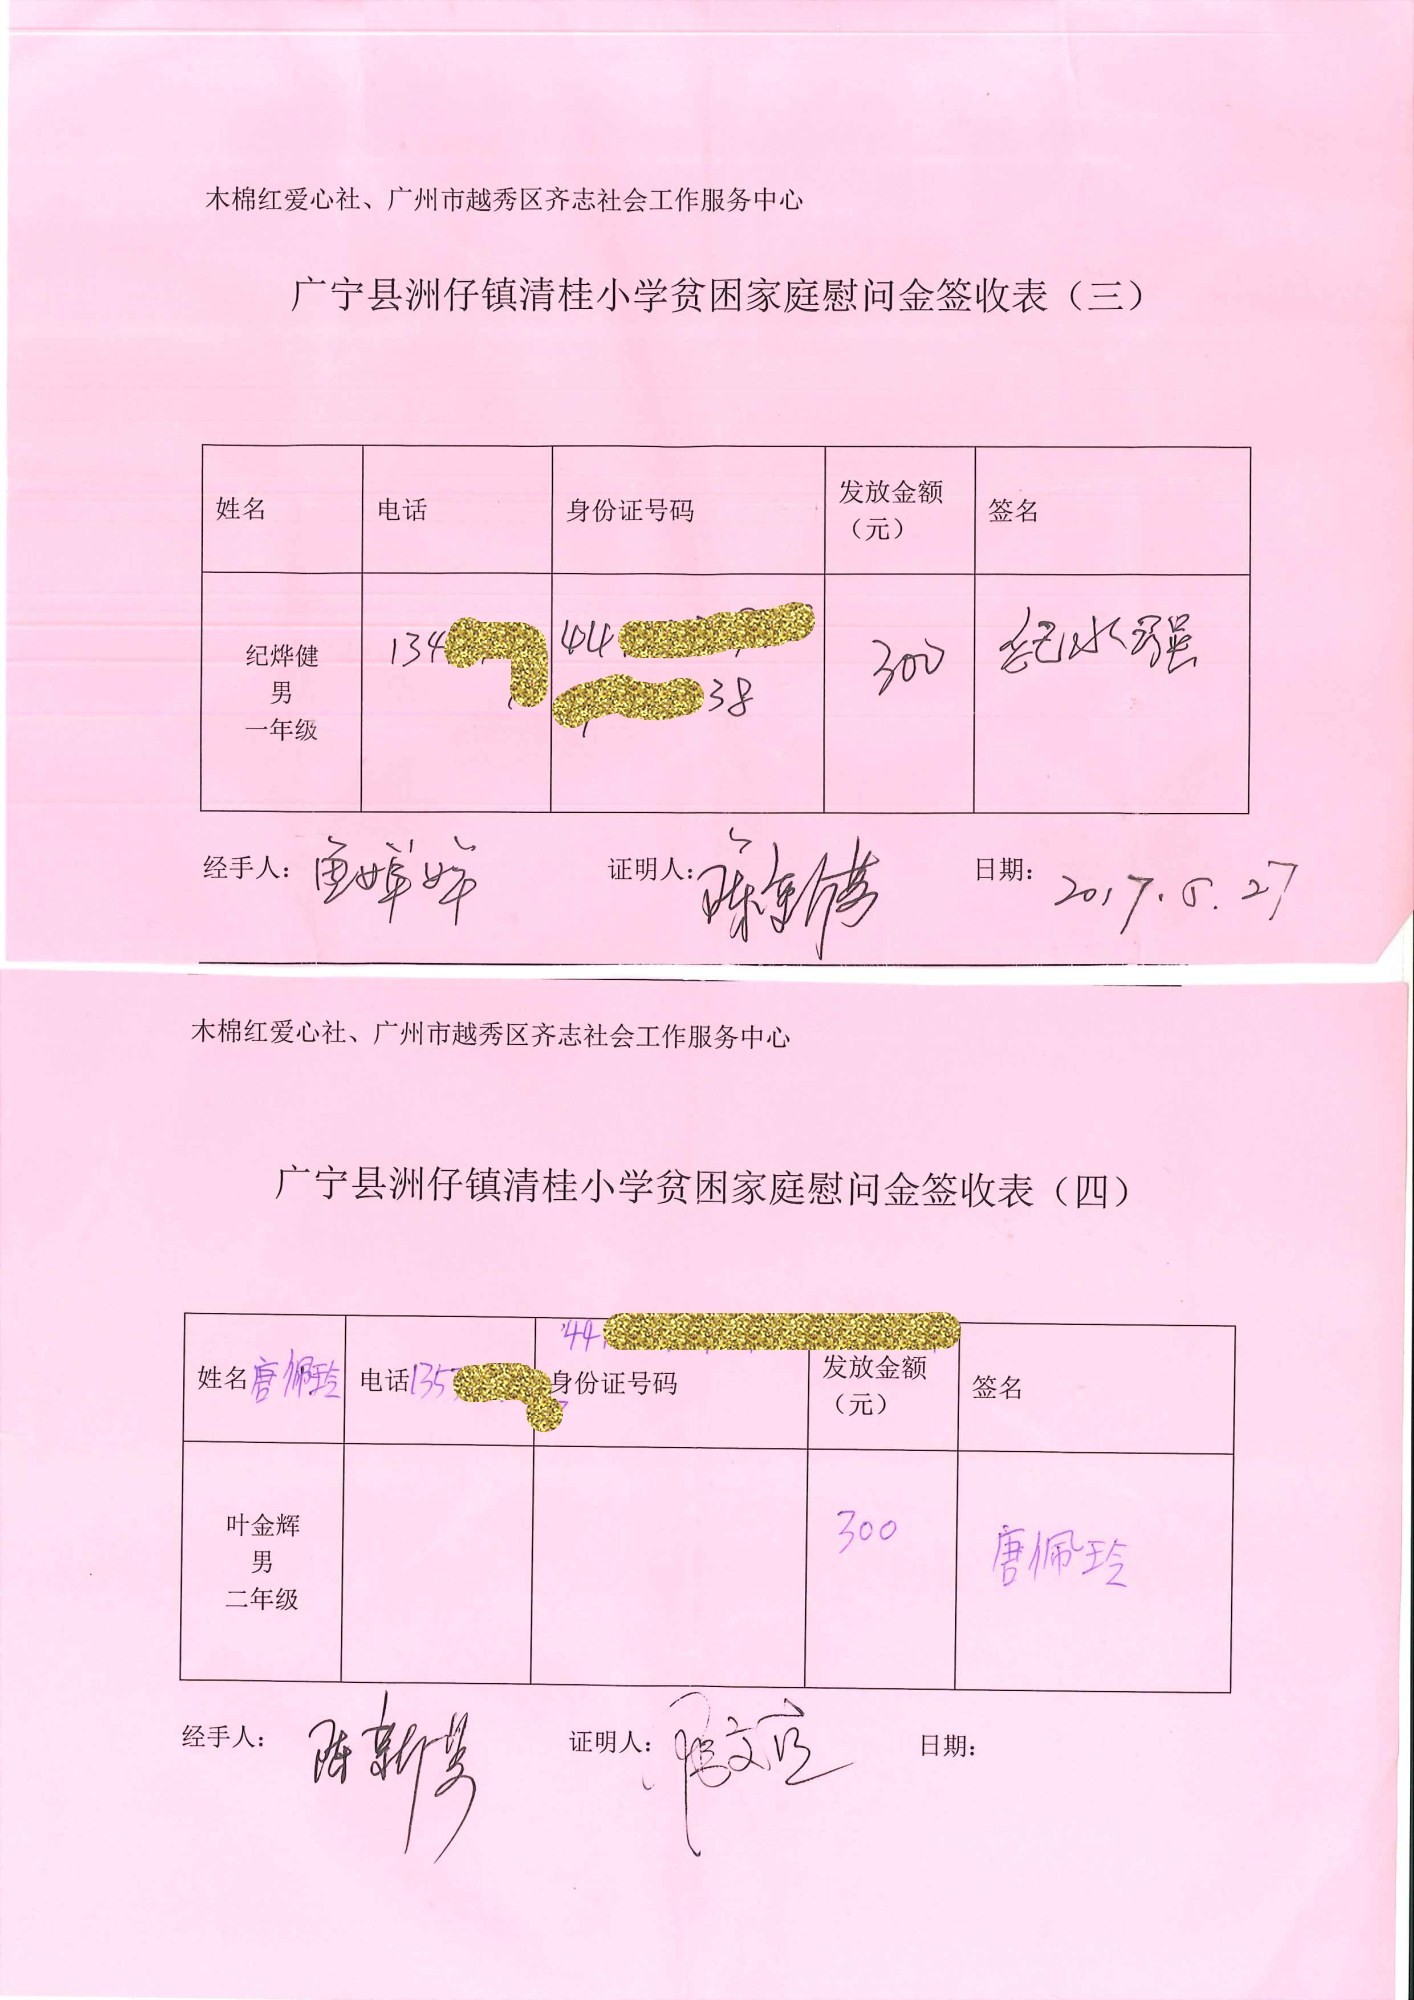 木棉红爱心社、广州市越秀区齐志社会工作服务中心
广宁县洲仔镇清桂小学贫困家庭慰问金签收表（三）
姓名 电话 身份证号码 发放金额（元） 签名
纪烨健
男
一年级
134 44
38
300
经手人： 证明人： 陈新芳 日期： 2017.5.27
木棉红爱心社、广州市越秀区齐志社会工作服务中心
广宁县洲仔镇清桂小学贫困家庭慰问金签收表（四）
44
姓名 唐佩玲 电话 135 身份证号码 发放金额（元） 签名
叶金辉
男
二年级
300 唐佩玲
经手人： 陈新芳 证明人： 日期：